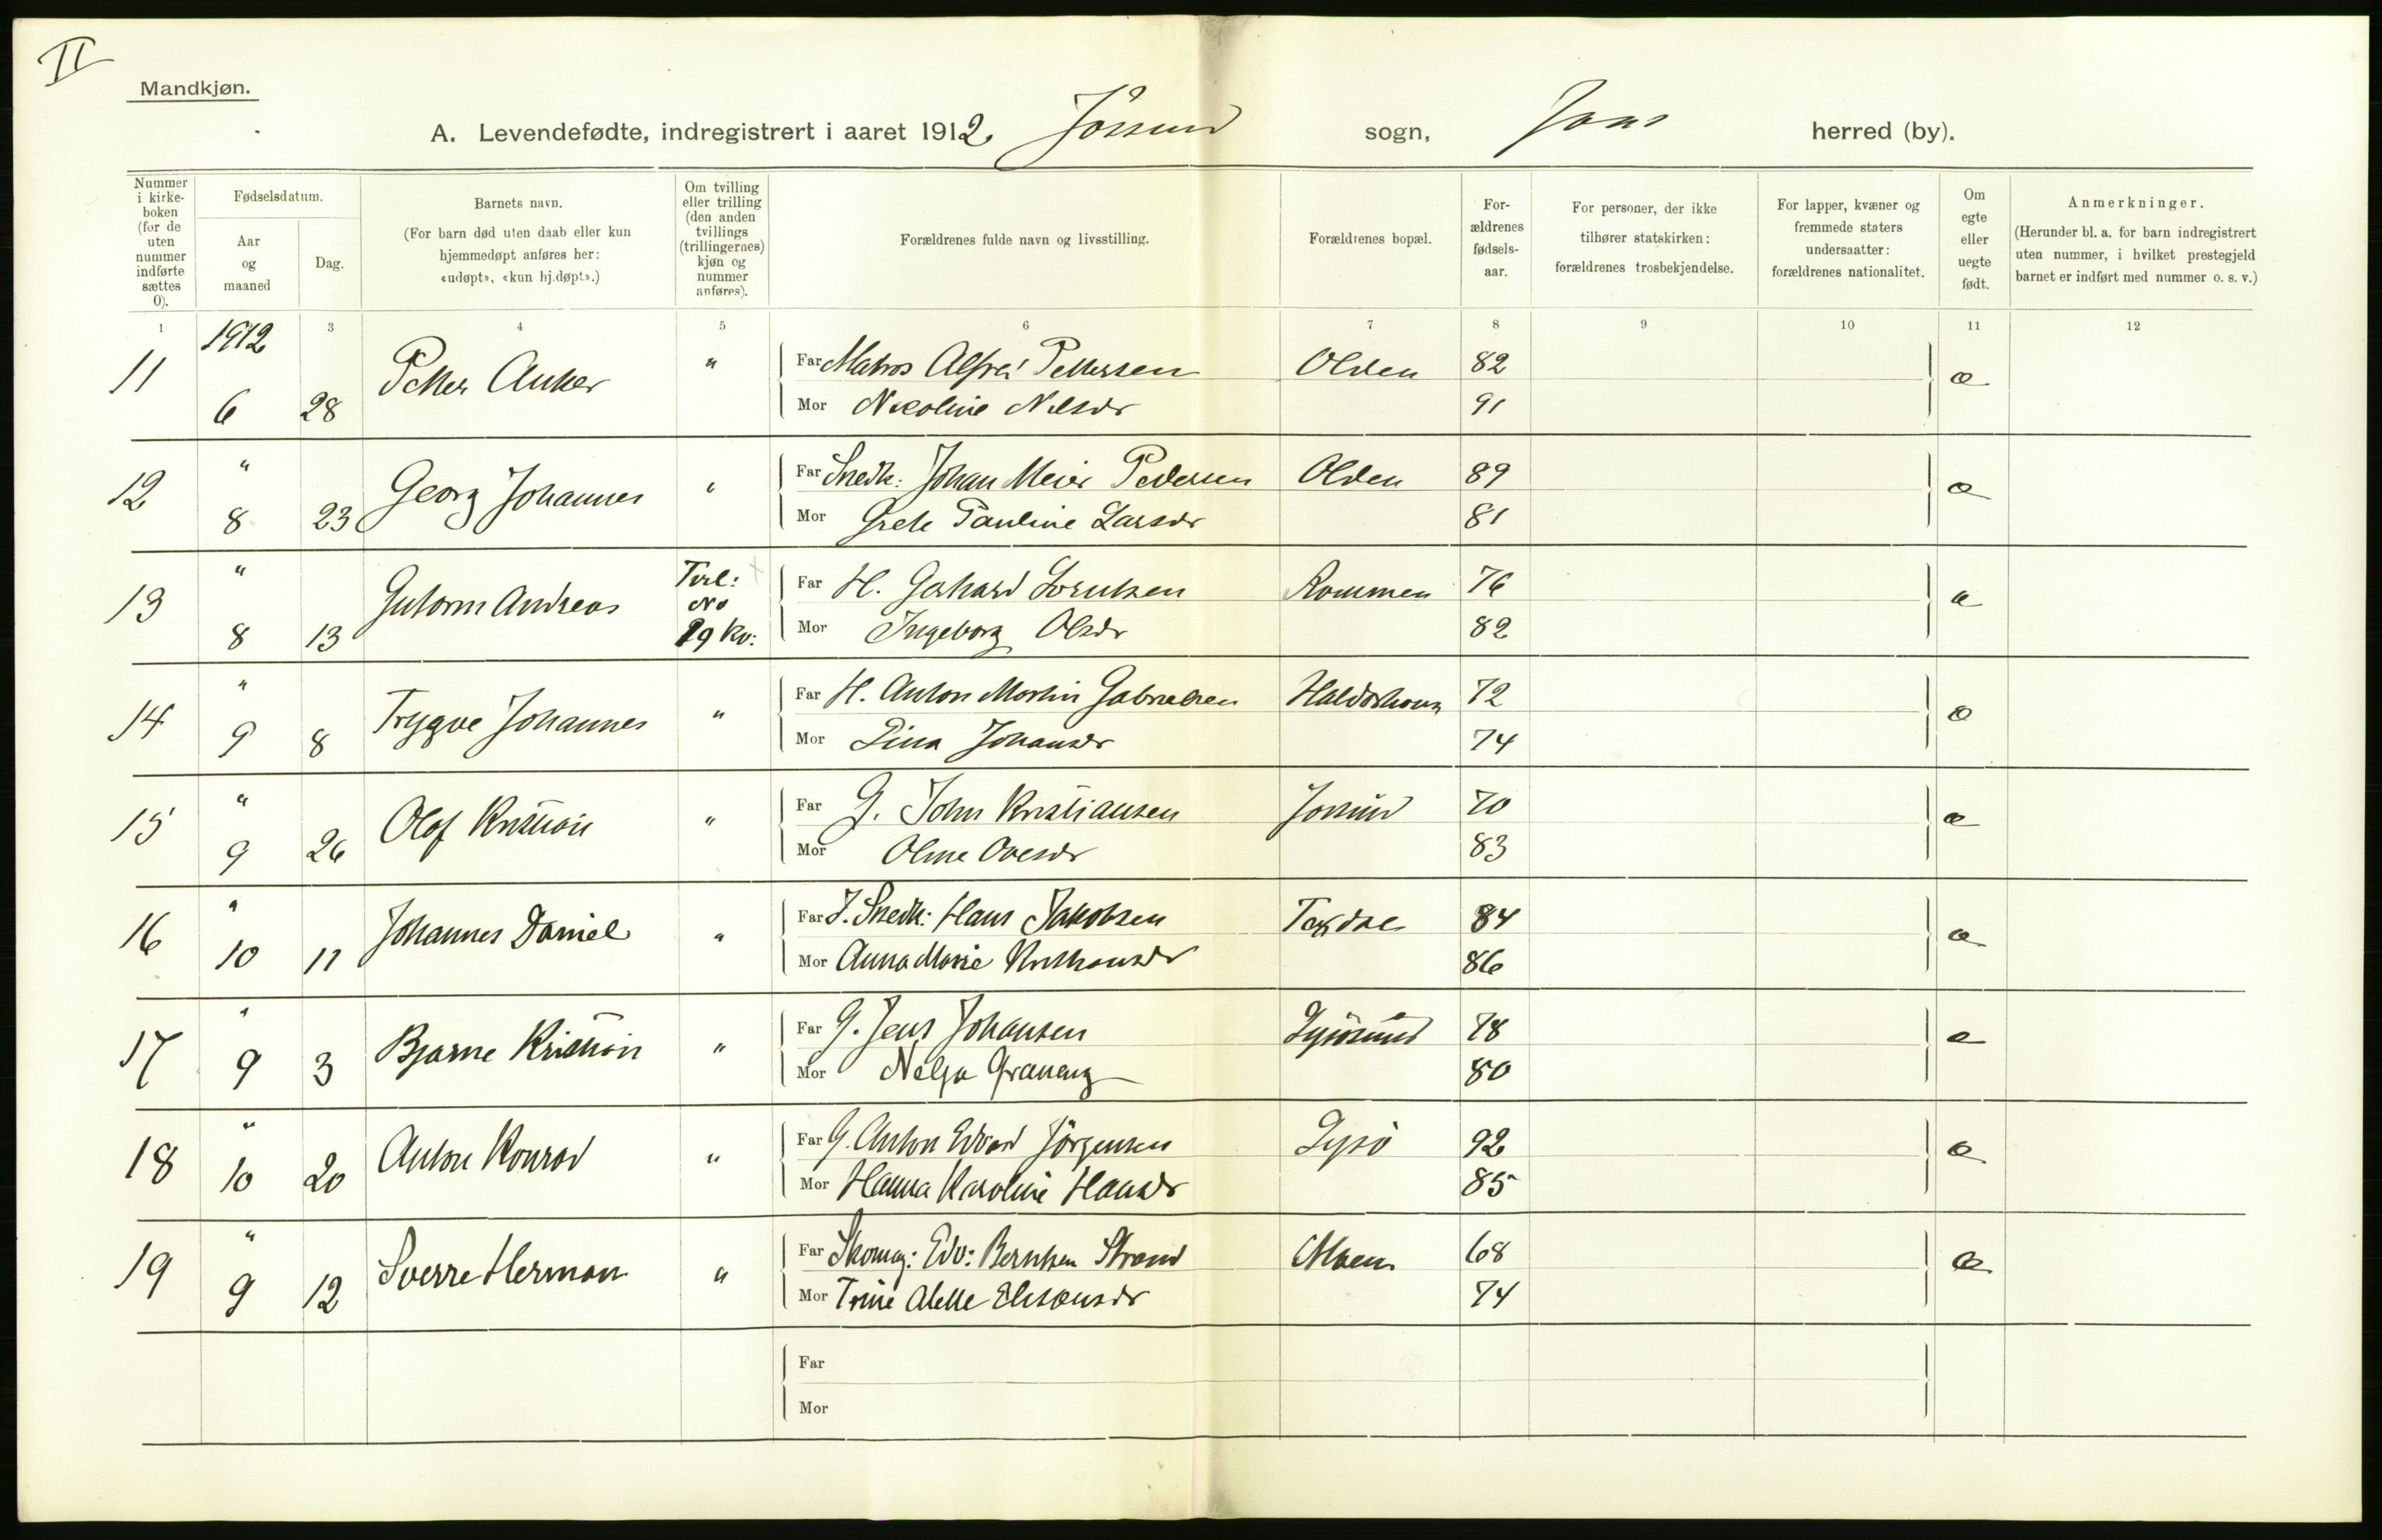 II
Mandkjøn.
A. Levendefødte, indregistrert i aaret 1912. Jössund sogn, herred (by).
Nummer i kirke-boken (for de uten nummer indførte sættes 0).
Fødselsdatum.
Aar og maaned
Dag.
Barnets navn.
(For barn død uten daab eller kun hjemmedøpt anføres her: «udøpt», «kun hj.døpt».)
Om tvilling eller trilling (den anden tvillings (trillingernes) kjøn og nummer anføres).
Forældrenes fulde navn og livsstilling.
Forældrenes bopæl.
For-ældrenes fødsels-aar.
For personer, der ikke tilhører statskirken: forældrenes trosbekjendelse.
For lapper, kvæner og fremmede staters undersaatter: forældrenes nationalitet.
Om egte eller uegte født.
Anmerkninger.
(Herunder bl. a. for barn indregistrert uten nummer, i hvilket prestegjeld barnet er indført med nummer o. s. v.)
1 3 4 5 6 7 8 9 10 11 12
1912
11 Petter Anker " Far Matros Alfred Pettersen Olden 82 æ
6 28 Mor Nicoline Nilsdr 91
12 " Georg Johannes " Far Snedk: Johan Meier Pedersen Olden 89 æ
8 23 Mor Grete Pauline Larsdr 81
13 " Gutorm Andreas Tvil: No 19 Kv: Far H. Gerhard Lorentsen Rommen 76 æ
8 13 Mor Ingeborg Olsdr 82
14 " Trygve Johannes " Far H. Anton Martin Gabrielsen 72 æ
9 8 Mor Lina Johansdr 74
15 " Olaf Kristian " Far G. John Kristiansen Jössund 70 æ
9 26 Mor Oline Ovesdr 83
16 " Johannes Daniel " Far J. Snedk: Hans Jakobsen Texdal 84 æ
10 11 Mor Anna Marie Kristiansdr 86
17 " Bjarne Kristian " Far G. Jens Johansen Lysösund 78 æ
9 3 Mor Graneng 80
18 " Anton Konrad " Far G. Anton Edvard Jörgensen Lysö 92 æ
10 20 Mor Hanna Karoline Hansdr 85
19 " Sverre Herman " Far Skomag: Edv: Berntsen Strand Moen 68 æ
9 12 Mor Trine Alette Eliseusdr 74
Far
Mor